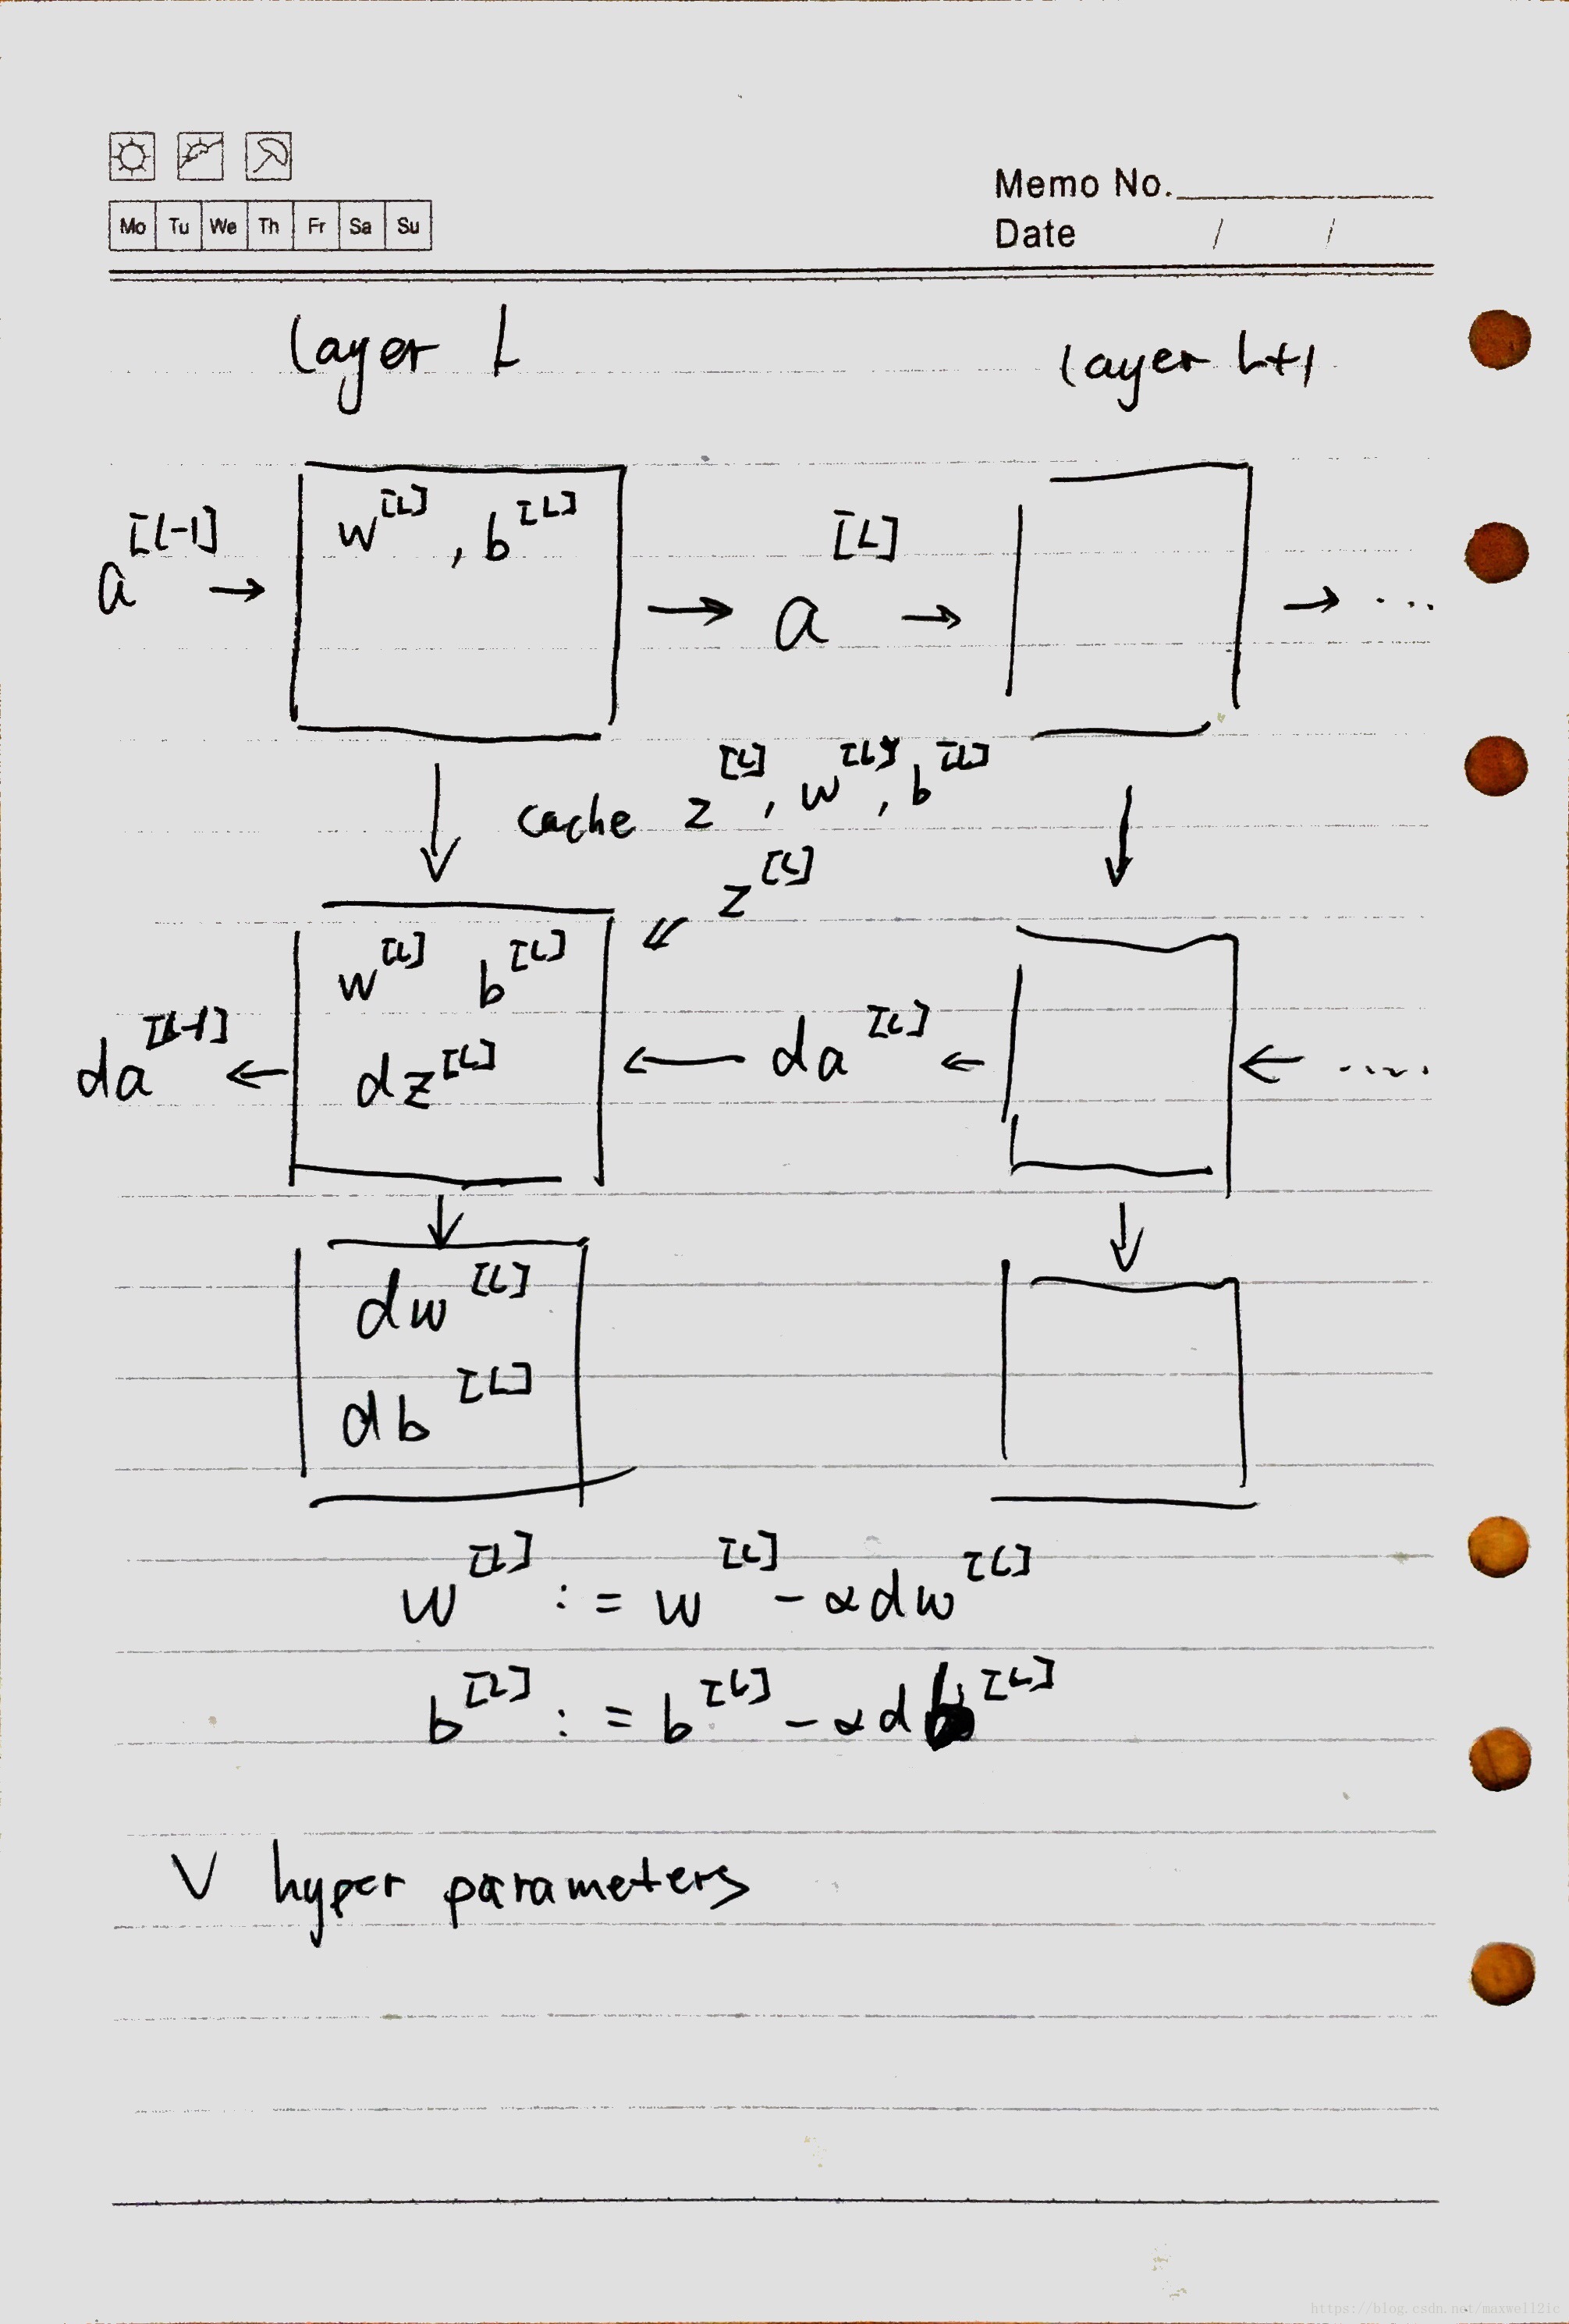 Memo No.
Mo Tu We Th Fr Sa Su
Date / /
layer L
layer L+1
a^[L-1] → w^[L], b^[L] → a^[L] → → ...
cache z^[L], w^[L], b^[L]
z^[L]
w^[L] b^[L]
da^[L-1] ← dz^[L] ← da^[L] ← ← .....
dw^[L]
db^[L]
w^[L] := w^[L] - αdw^[L]
b^[L] := b^[L] - αdb^[L]
V hyper parameters
https://blog.csdn.net/maxwell2ic